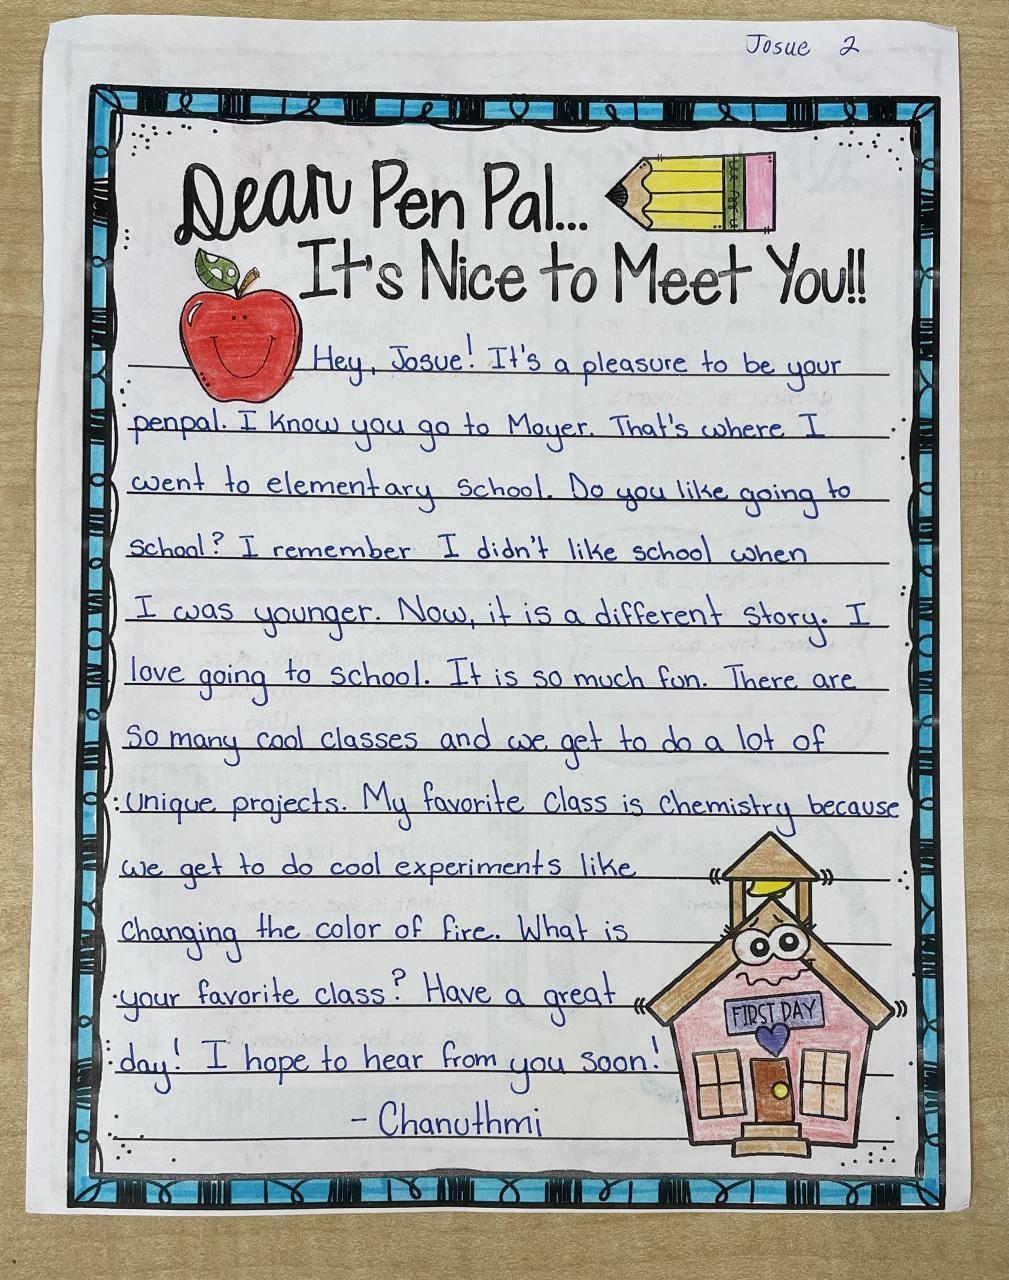 Josue 2
Dear Pen Pal...
It's Nice to Meet You!!
Hey, Josue! It's a pleasure to be your
penpal. I know you go to Moyer. That's where I
went to elementary school. Do you like going to
school? I remember I didn't like school when
I was younger. Now, it is a different story. I
love going to school. It is so much fun. There are
so many cool classes and we get to do a lot of
unique projects. My favorite class is chemistry because
we get to do cool experiments like
changing the color of fire. What is
your favorite class? Have a great
day! I hope to hear from you soon!
- Chanuthmi
FIRST DAY